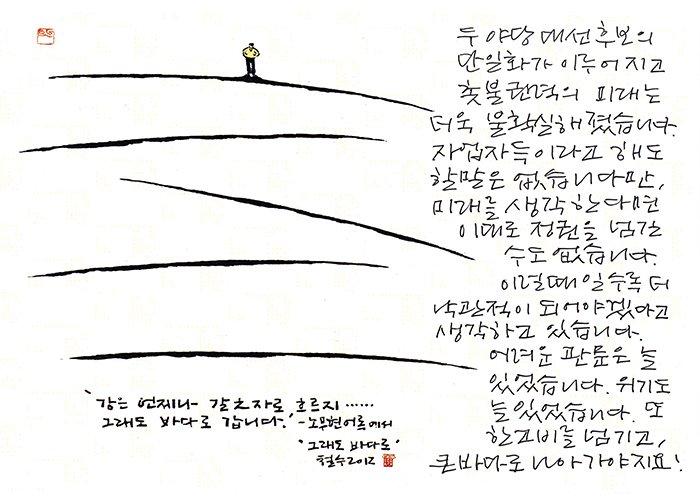 두 야당 대선후보의
단일화가 이루어 지고
촛불권력의 미래는
더욱 불확실해졌습니다.
자업자득이라고 해도
할말은 없습니다만,
미래를 생각 한다면
이대로 정권을 넘길
수도 없습니다.
이럴때일수록 더
낙관적이 되어야겠다고
생각하고 있습니다.
어려운 판룬은 늘
있었습니다. 위기도
늘있었습니다. 또
한고비를 넘기고,
큰바다로 나아가야지요!
'강은 언제나 갈之자로 흐르지……
그래도 바다로 갑니다.' -노무현어록에서
'그래도 바다로'
철수2012